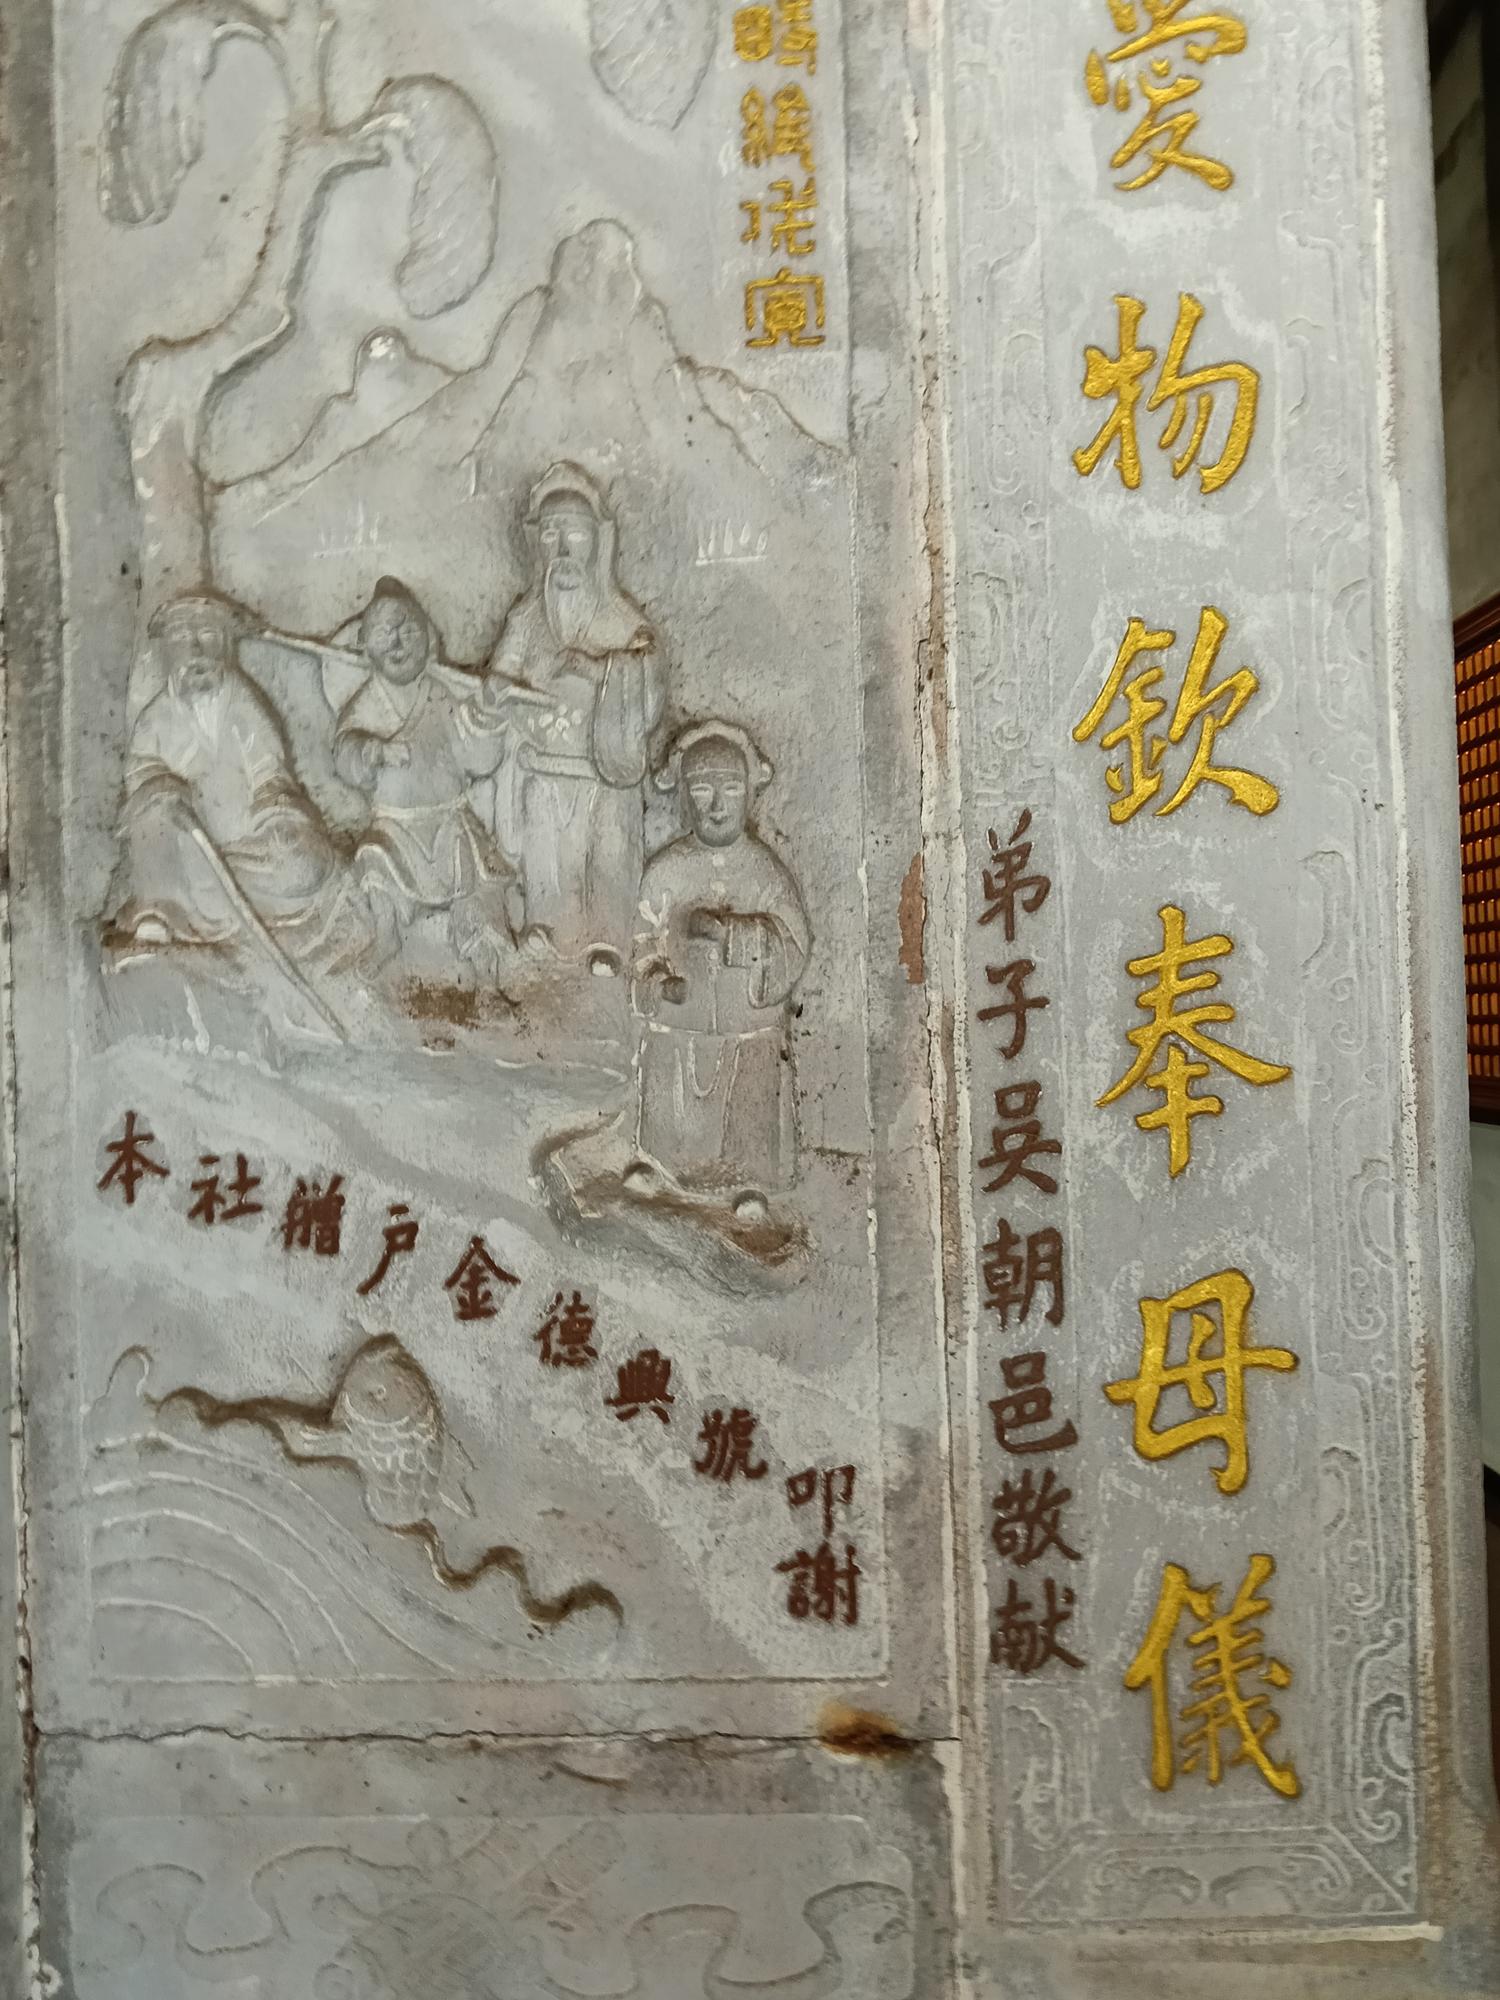 愛物欽奉母儀
弟子吳朝邑敬献
本社贈戶金德興號叩謝